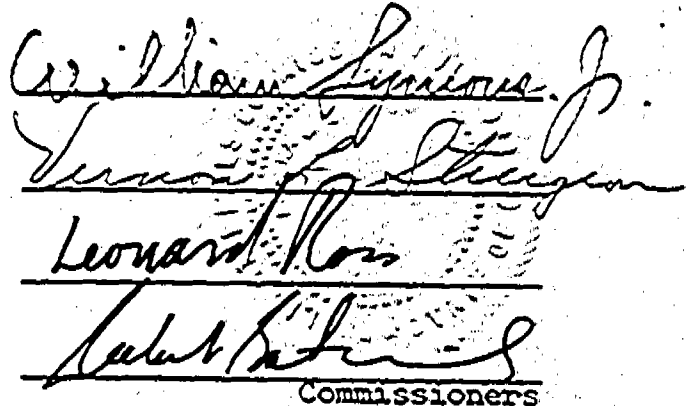 William Symons, Jr.
Vernon L. Sturgeon
Leonard Ross
Robert Batinovich
Commissioners